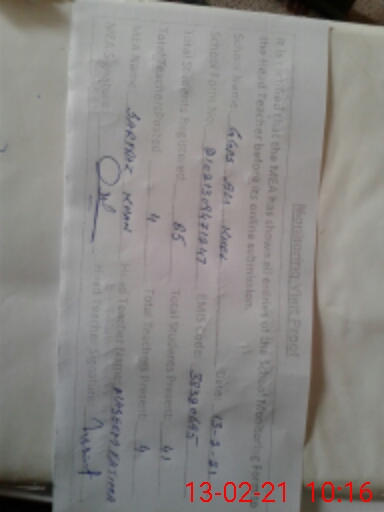 Monitoring Visit Proof
It is certified that the MEA has shown all entries of the School Monitoring Form to
the Head Teacher before its online submission.
School Name: GGPS ALI KHEL Date: 13-2-21
School Form No: EMIS Code:
Total Students Registered: 85 Total Students Present: 41
Total Teachers Posted 4 Total Teachers Present: 4
MEA Name: SARFRAZ KHAN Head Teacher Name:
MEA Signature Head Teacher Signature
13-02-21 10:16